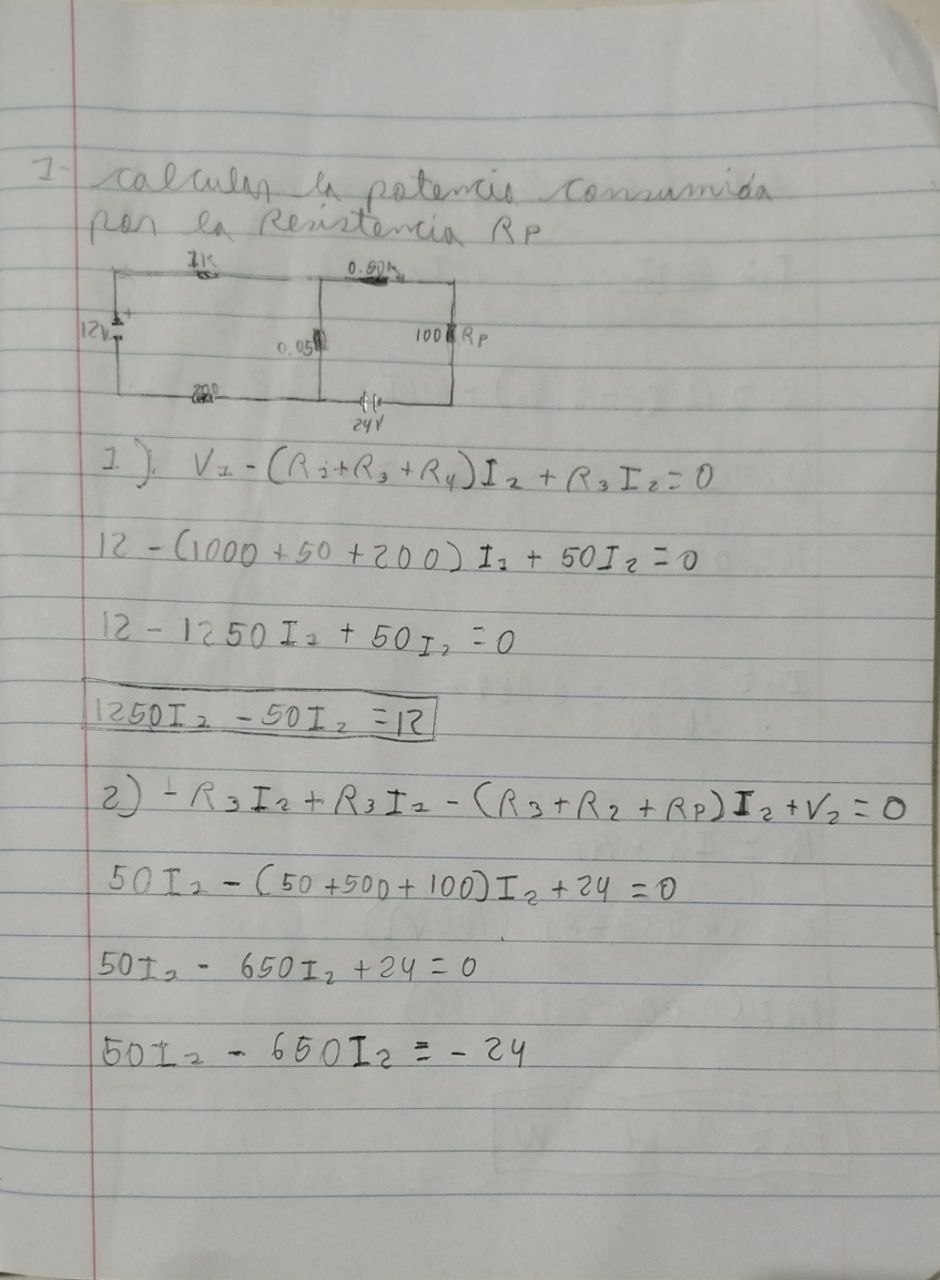 1- calcular la potencia consumida
por la Resistencia RP
1K
0.50K
12V
+
0.05
100
RP
200
24V
1). V1 - (R1 + R3 + R4) I1 + R3 I2 = 0
12 - (1000 + 50 + 200) I1 + 50 I2 = 0
12 - 1250 I1 + 50 I2 = 0
1250 I1 - 50 I2 = 12
2) - R3 I2 + R3 I1 - (R3 + R2 + RP) I2 + V2 = 0
50 I1 - (50 + 500 + 100) I2 + 24 = 0
50 I1 - 650 I2 + 24 = 0
50 I1 - 650 I2 = - 24